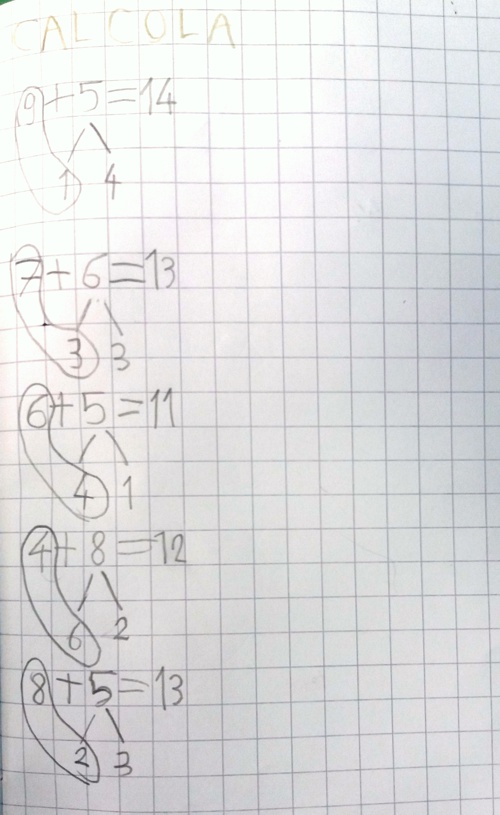 CALCOLA
9+5=14
1 4
7+6=13
3 3
6+5=11
4 1
4+8=12
6 2
8+5=13
2 3